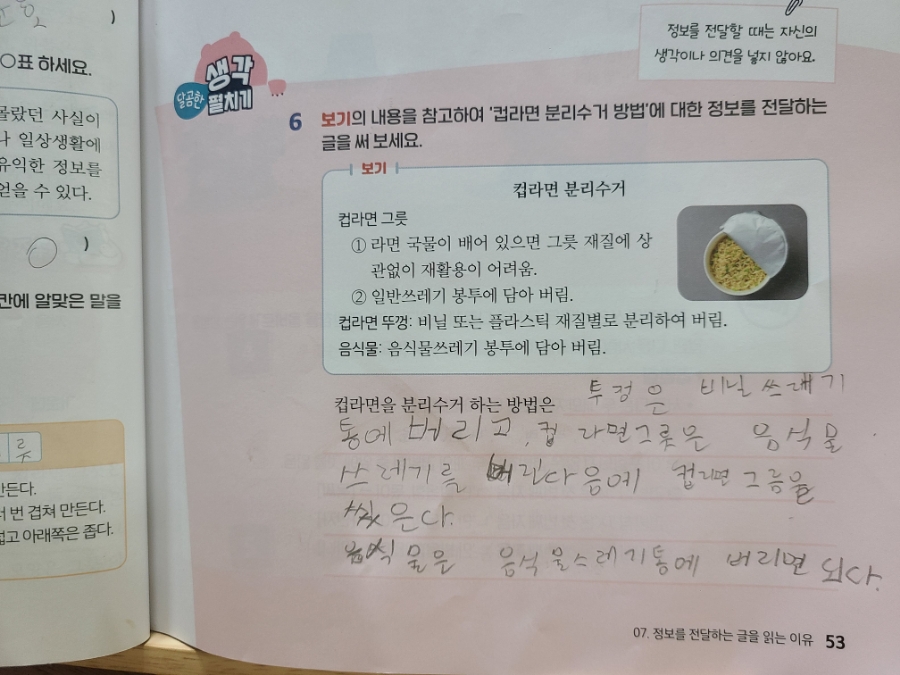 )
○표 하세요.
몰랐던 사실이
나 일상생활에
유익한 정보를
얻을 수 있다.
)
칸에 알맞은 말을
류
만든다.
번 겹쳐 만든다.
넓고 아래쪽은 좁다.
정보를 전달할 때는 자신의
생각이나 의견을 넣지 않아요.
달곰한 생각 펼치기
6 보기의 내용을 참고하여 '컵라면 분리수거 방법'에 대한 정보를 전달하는
글을 써 보세요.
보기
컵라면 분리수거
컵라면 그릇
① 라면 국물이 배어 있으면 그릇 재질에 상
관없이 재활용이 어려움.
② 일반쓰레기 봉투에 담아 버림.
컵라면 뚜껑: 비닐 또는 플라스틱 재질별로 분리하여 버림.
음식물: 음식물쓰레기 봉투에 담아 버림.
컵라면을 분리수거 하는 방법은 투경은 비닐 쓰래기
통에 버리고, 컵 라면그릇은 음식물
쓰레기를 버린다음에 컵라면 그릉을
씻은다.
음식물은 음식물스레기통에 버리면 되다.
07. 정보를 전달하는 글을 읽는 이유 53